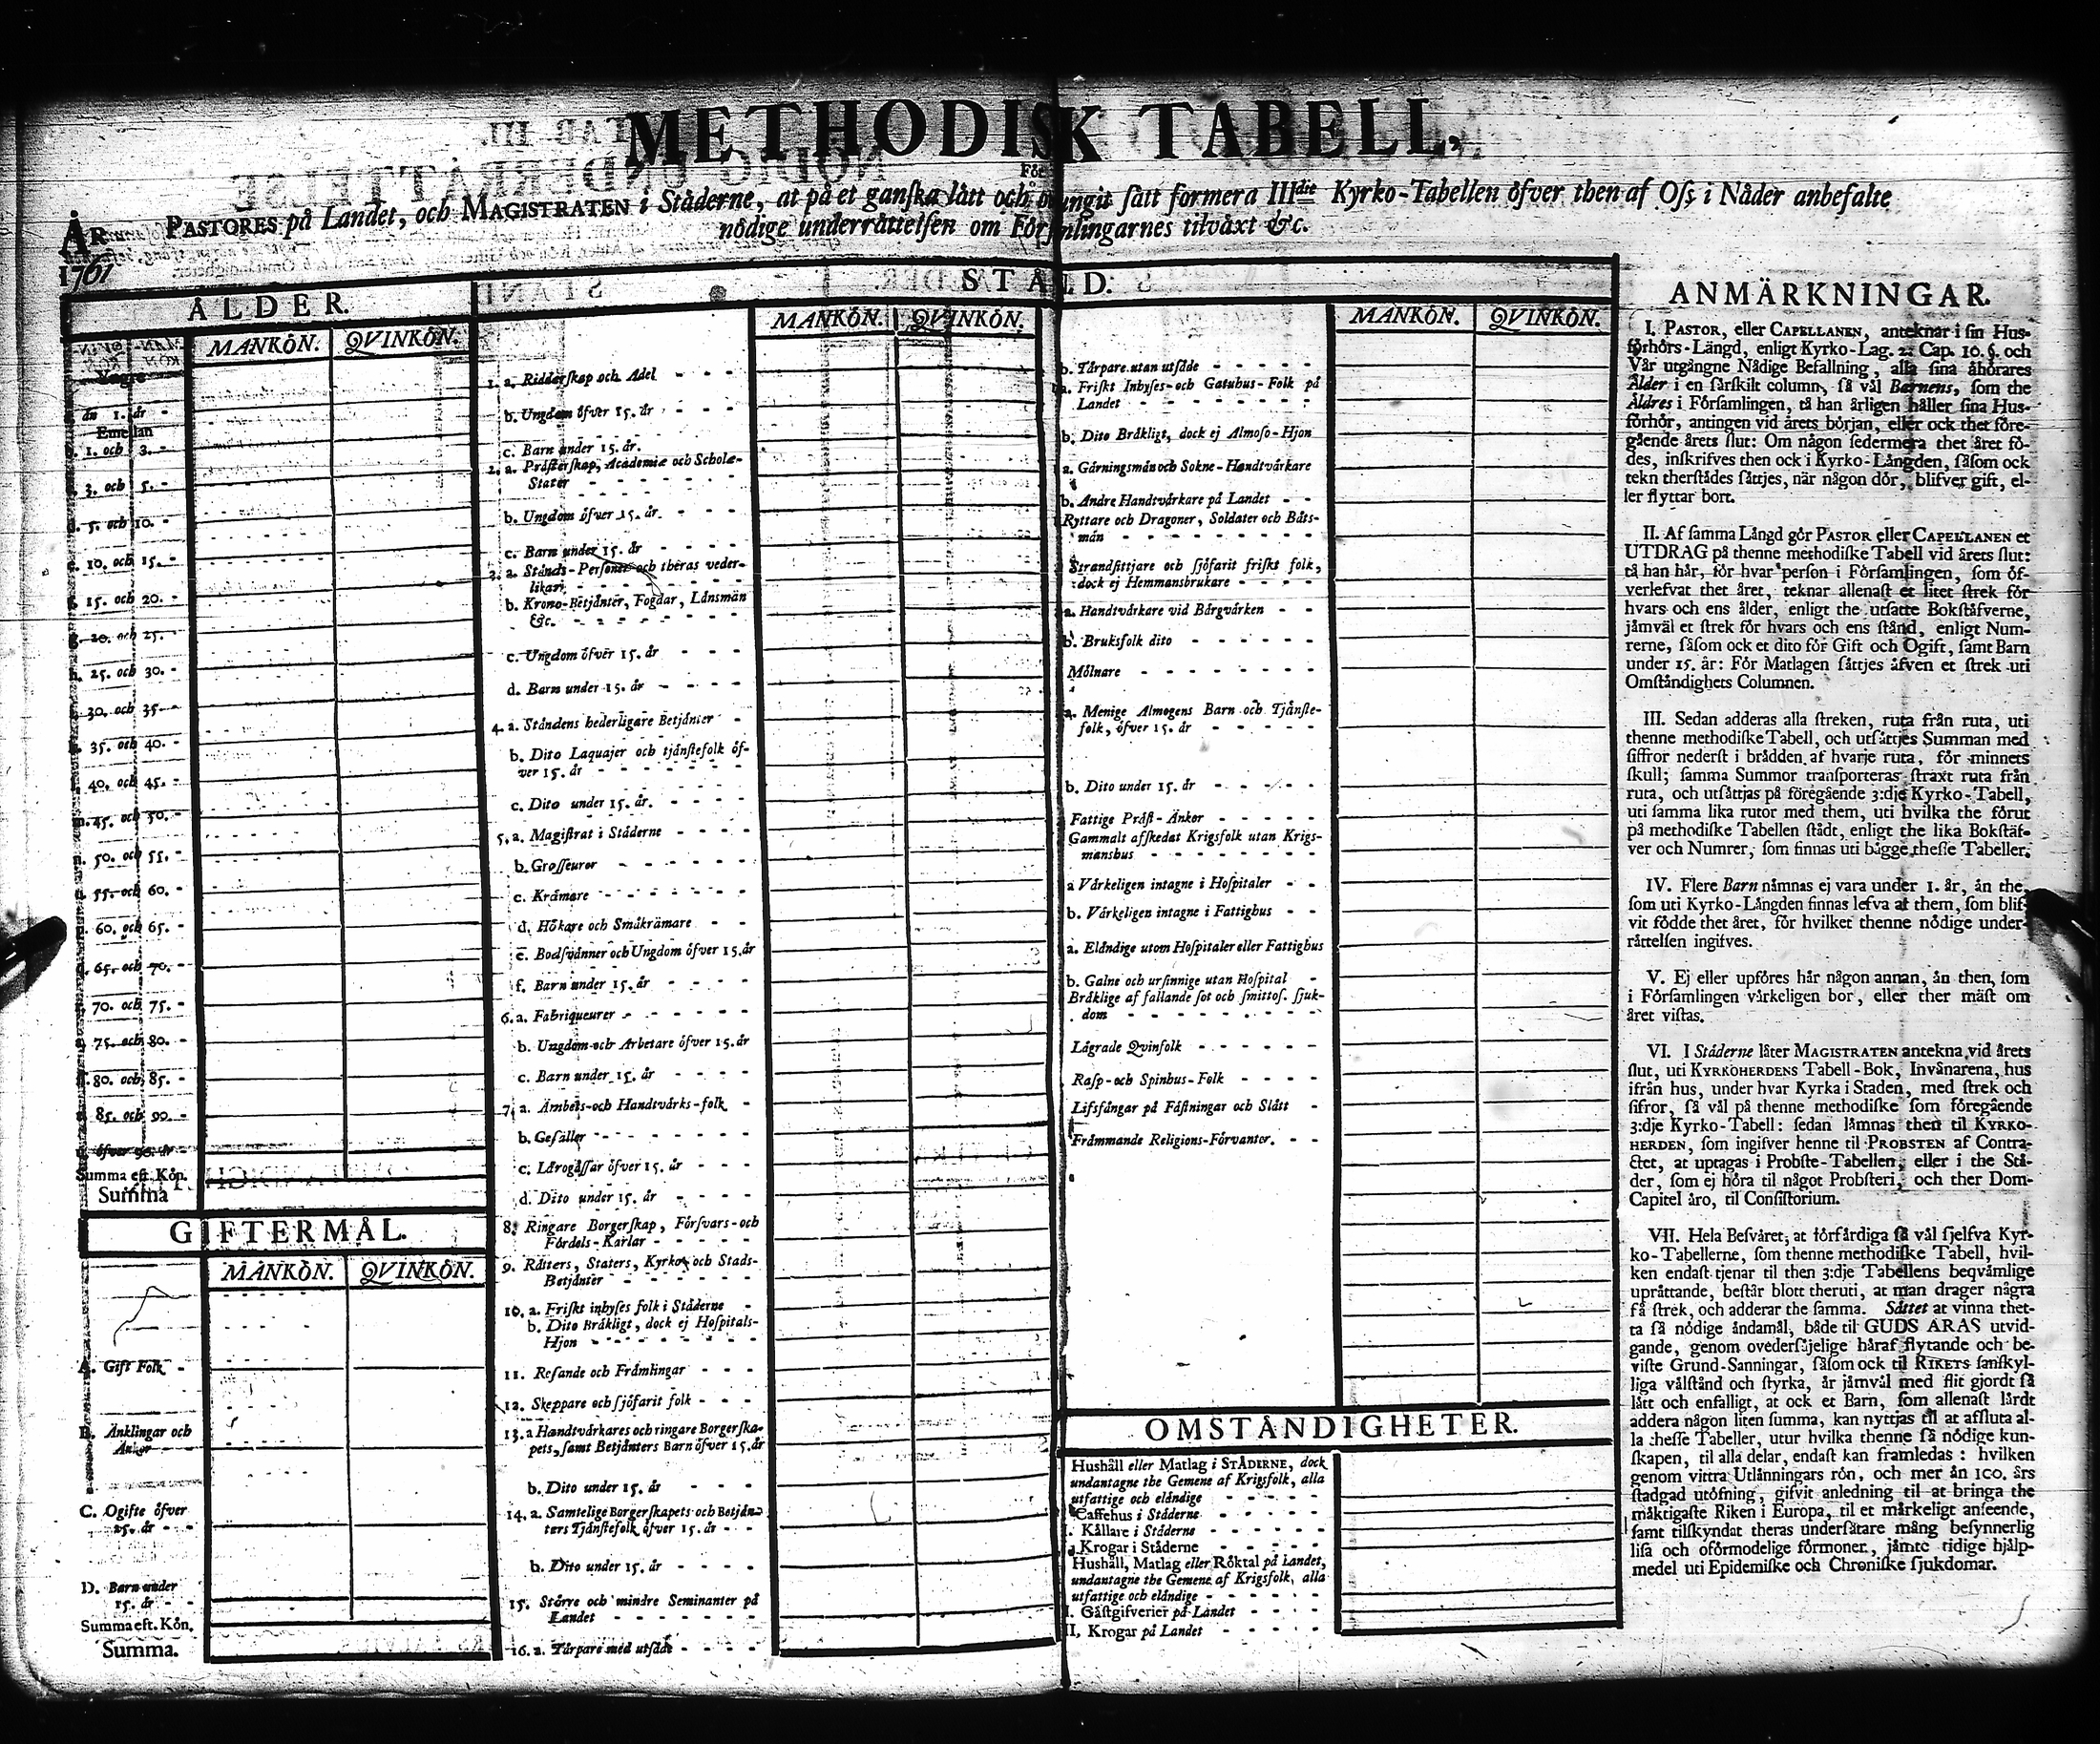 METHODISK TABELL,
För
PASTORES på Landet, och MAGISTRATEN i Städerne, at på et ganska lått och otvungit fått formera IIIdie Kyrko-Tabellen öfver then af Ofs i Nåder anbefalte
nödige underråttelsen om Församlingarnes tilvåxt &c.
ÅR
1761
ÅLDER.
MANKÖN. QVINKÖN.
Yngre
än 1. år
Emellan
1. och 3.
3. och 5.
5. och 10.
10. och 15.
15. och 20.
20. och 25.
25. och 30.
30. och 35.
35. och 40.
40. och 45.
45. och 50.
50. och 55.
55. och 60.
60. och 65.
65. och 70.
70. och 75.
75. och 80.
80. och 85.
85. och 90.
öfver 90. år
Summa eft. Kön.
Summa
GIFTERMÅL.
MANKÖN. QVINKÖN.
A. Gift Folk
B. Änklingar och
Änkor
C. Ogifte öfver
15. år
D. Barn under
15. år
Summa eft. Kön.
Summa.
STÅND.
MANKÖN. QVINKÖN.
1. a. Ridderskap och Adel
b. Ungdom öfver 15. år
c. Barn under 15. år.
2. a. Prästerskap, Academiæ och Scholæ-
Stater
b. Ungdom öfver 15. år.
c. Barn under 15. år
3. a. Stånds-Personer och theras veder-
likar
b. Krono-Betjänter, Fogdar, Länsmän
&c.
c. Ungdom öfver 15. år
d. Barn under 15. år
4. a. Ståndens hederligare Betjänter
b. Dito Laquajer och tjänstefolk öf-
ver 15. år
c. Dito under 15. år.
5. a. Magistrat i Städerne
b. Grosseurer
c. Krämare
d. Hökare och Småkrämare
e. Bodsvänner och Ungdom öfver 15. år
f. Barn under 15. år
6. a. Fabriqueurer
b. Ungdom och Arbetare öfver 15. år
c. Barn under 15. år
7. a. Ämbets- och Handtvårks-folk
b. Gesäller
c. Lärogåssar öfver 15. år
d. Dito under 15. år
8. Ringare Borgerskap, Försvars- och
Fördels-Karlar
9. Råtters, Staters, Kyrko och Stads-
Betjänter
10. a. Friskt inhyses folk i Städerne
b. Dito Bråkligt, dock ej Hospitals-
Hjon
11. Resande och Främlingar
12. Skeppare och sjöfarit folk
13. a Handtvårkares och ringare Borgerska-
pets, samt Betjänters Barn öfver 15. år
b. Dito under 15. år
14. a. Samtelige Borgerskapets och Betjän-
ters Tjänstefolk öfver 15. år
b. Dito under 15. år
15. Större och mindre Seminanter på
Landet
16. a. Tårpare med utsåde
MANKÖN. QVINKÖN.
b. Tårpare utan utsåde
a. Friskt Inhyses- och Gatuhus-Folk på
Landet
b. Dito Bråkligt, dock ej Almoso-Hjon
a. Gärningsmän och Sokne-Handtvårkare
b. Andre Handtvårkare på Landet
Ryttare och Dragoner, Soldater och Båts-
män
Strandsittjare och sjöfarit friskt folk,
dock ej Hemmansbrukare
a. Handtvårkare vid Bårgvårken
b. Bruksfolk dito
Mölnare
a. Menige Almogens Barn och Tjänste-
folk, öfver 15. år
b. Dito under 15. år
Fattige Präst-Änkor
Gammalt afskedat Krigsfolk utan Krigs-
manshus
a Vårkeligen intagne i Hospitaler
b. Vårkeligen intagne i Fattighus
a. Elåndige utom Hospitaler eller Fattighus
b. Galne och ursinnige utan Hospital
Bråklige af fallande sot och smittos. sjuk-
dom
Lågrade Qvinfolk
Rasp- och Spinhus-Folk
Lifsfångar på Fästningar och Slått
Främmande Religions-Förvanter.
OMSTÄNDIGHETER.
Hushåll eller Matlag i STÄDERNE, dock
undantagne the Gemene af Krigsfolk, alla
utfattige och elåndige
Caffehus i Städerne
Kållare i Städerne
Krogar i Städerne
Hushåll, Matlag eller Röktal på Landet,
undantagne the Gemene af Krigsfolk, alla
utfattige och elåndige
I. Gästgifverier på Landet
II. Krogar på Landet
ANMÄRKNINGAR.
I. PASTOR, eller CAPELLANEN, anteknar i sin Hus-
förhörs-Längd, enligt Kyrko-Lag. 2: Cap. 10. §. och
Vår utgångne Nådige Befallning, alla sina åhörares
Ålder i en särskilt column, så väl Barnens, som the
Äldres i Församlingen, tå han årligen håller sina Hus-
förhör, antingen vid årets början, eller ock thet före-
gående årets slut: Om någon sedermera thet året fö-
des, inskrifves then ock i Kyrko-Långden, såsom ock
tekn therstädes såttjes, när någon dör, blifver gift, el-
ler flyttar bort.
II. Af samma Långd gör PASTOR eller CAPELLANEN et
UTDRAG på thenne methodiske Tabell vid årets slut:
tå han hår, för hvar person i Församlingen, som öf-
verlefvat thet året, teknar allenast et litet strek för
hvars och ens ålder, enligt the utsatte Bokståfverne,
jämväl et strek för hvars och ens stånd, enligt Num-
rerne, såsom ock et dito för Gift och Ogift, samt Barn
under 15. år: För Matlagen såttjes åfven et strek uti
Omståndighets Columnen.
III. Sedan adderas alla streken, ruta från ruta, uti
thenne methodiske Tabell, och utsåttjes Summan med
siffror nederst i brädden af hvarje ruta, för minnets
skull; samma Summor transporteras straxt ruta från
ruta, och utsåttjas på föregående 3:dje Kyrko-Tabell,
uti samma lika rutor med them, uti hvilka the förut
på methodiske Tabellen städt, enligt the lika Bokstäf-
ver och Numrer, som finnas uti bägge thesse Tabeller.
IV. Flere Barn nämnas ej vara under 1. år, än the
som uti Kyrko-Långden finnas lefva af them, som blif-
vit födde thet året, för hvilket thenne nödige under-
råttelsen ingifves.
V. Ej eller upföres hår någon annan, än then, som
i Församlingen vårkeligen bor, eller ther mäst om
året vistas.
VI. I Städerne låter MAGISTRATEN antekna vid årets
slut, uti KYRKOHERDENS Tabell-Bok, Invånarena, hus
ifrån hus, under hvar Kyrka i Staden, med strek och
sifror, så väl på thenne methodiske som föregående
3:dje Kyrko-Tabell: sedan lämnas then til KYRKO-
HERDEN, som ingifver henne til PROBSTEN af Contra-
ctet, at uptagas i Probste-Tabellen, eller i the Stä-
der, som ej höra til något Probsteri, och ther Dom-
Capitel äro, til Consistorium.
VII. Hela Besväret, at förfärdiga så väl sjelfva Kyr-
ko-Tabellerne, som thenne methodiske Tabell, hvil-
ken endast tjenar til then 3:dje Tabellens beqvämlige
upråttande, består blott theruti, at man drager några
få strek, och adderar the samma. Såttet at vinna thet-
ta så nödige ändamål, både til GUDS ÄRAS utvid-
gande, genom ovedersäjelige håraf flytande och be-
viste Grund-Sanningar, såsom ock til RIKETS sanskyl-
liga vålstånd och styrka, är jämväl med flit gjordt så
lått och enfalligt, at ock et Barn, som allenast lärdt
addera någon liten summa, kan nyttjas til at afsluta al-
la thesse Tabeller, utur hvilka thenne så nödige kun-
skapen, til alla delar, endast kan framledas: hvilken
genom vittra Utlånningars rön, och mer än 100. års
stadgad utöfning, gifvit anledning til at bringa the
mäktigaste Riken i Europa, til et mårkeligt anseende,
samt tilskyndat theras undersåtare mång besynnerlig
lisa och oförmodelige förmoner, jämte tidige hjälp-
medel uti Epidemiske och Chroniske sjukdomar.